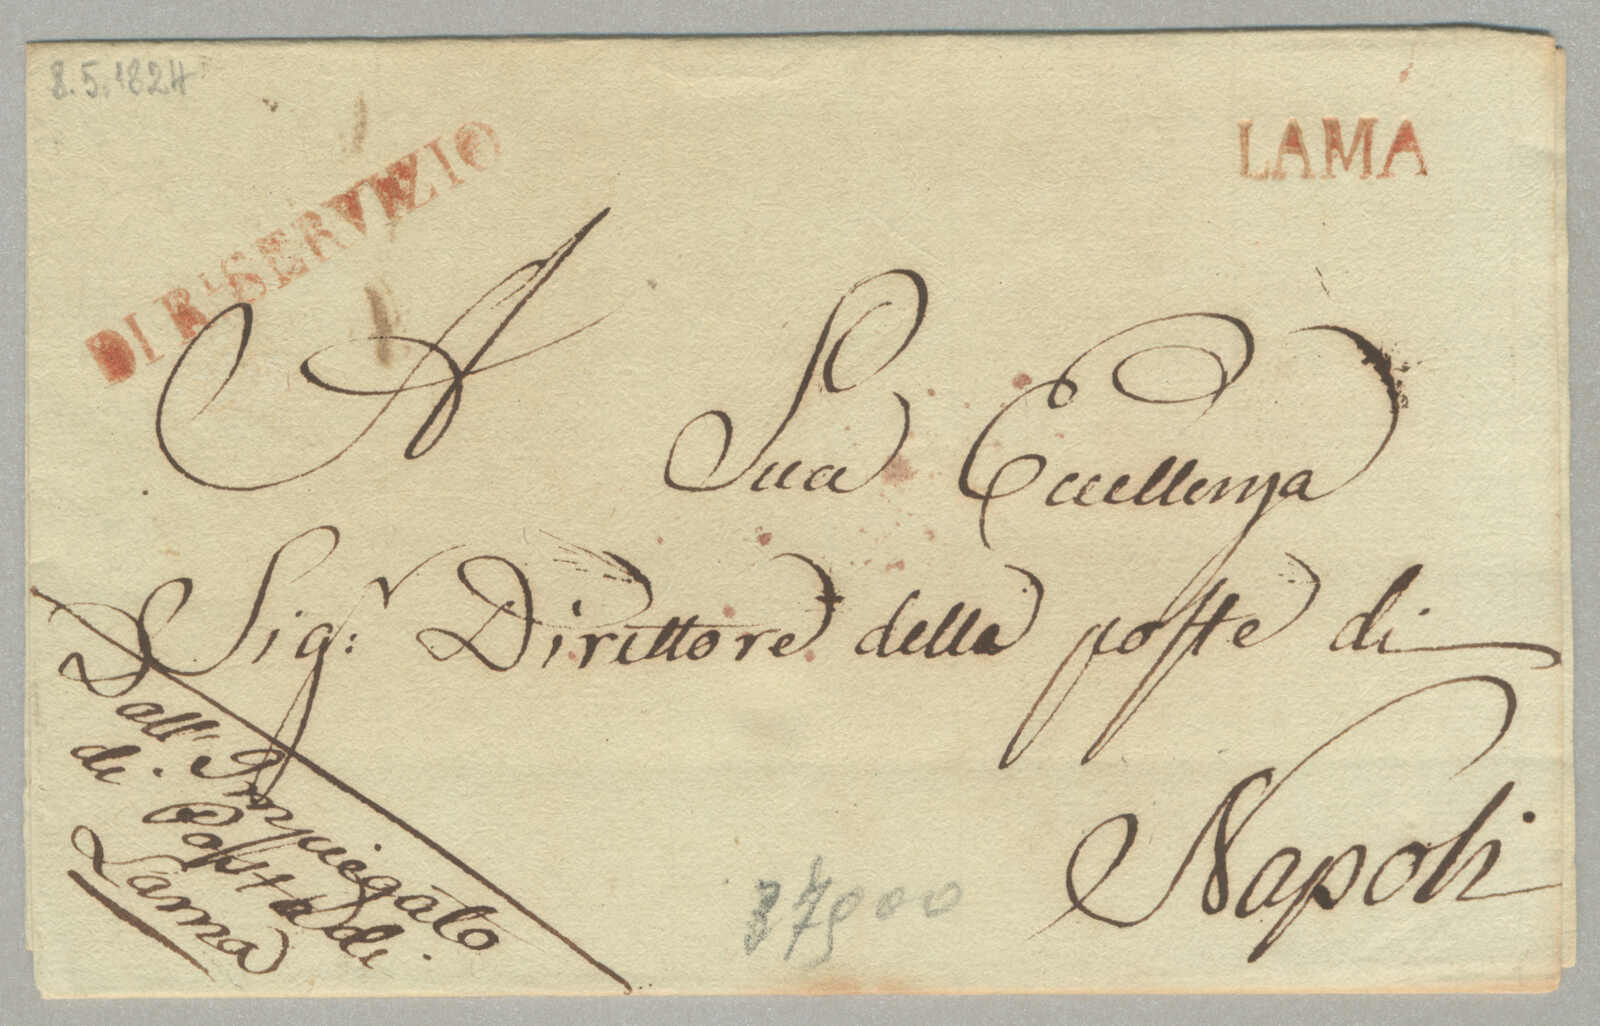 8.5.1824
DI RL SERVIZIO
LAMA
A Sua Eccellenza
Sigr: Direttore della poste di
Napoli
Dall' Impiegato
di Posta di
Lama